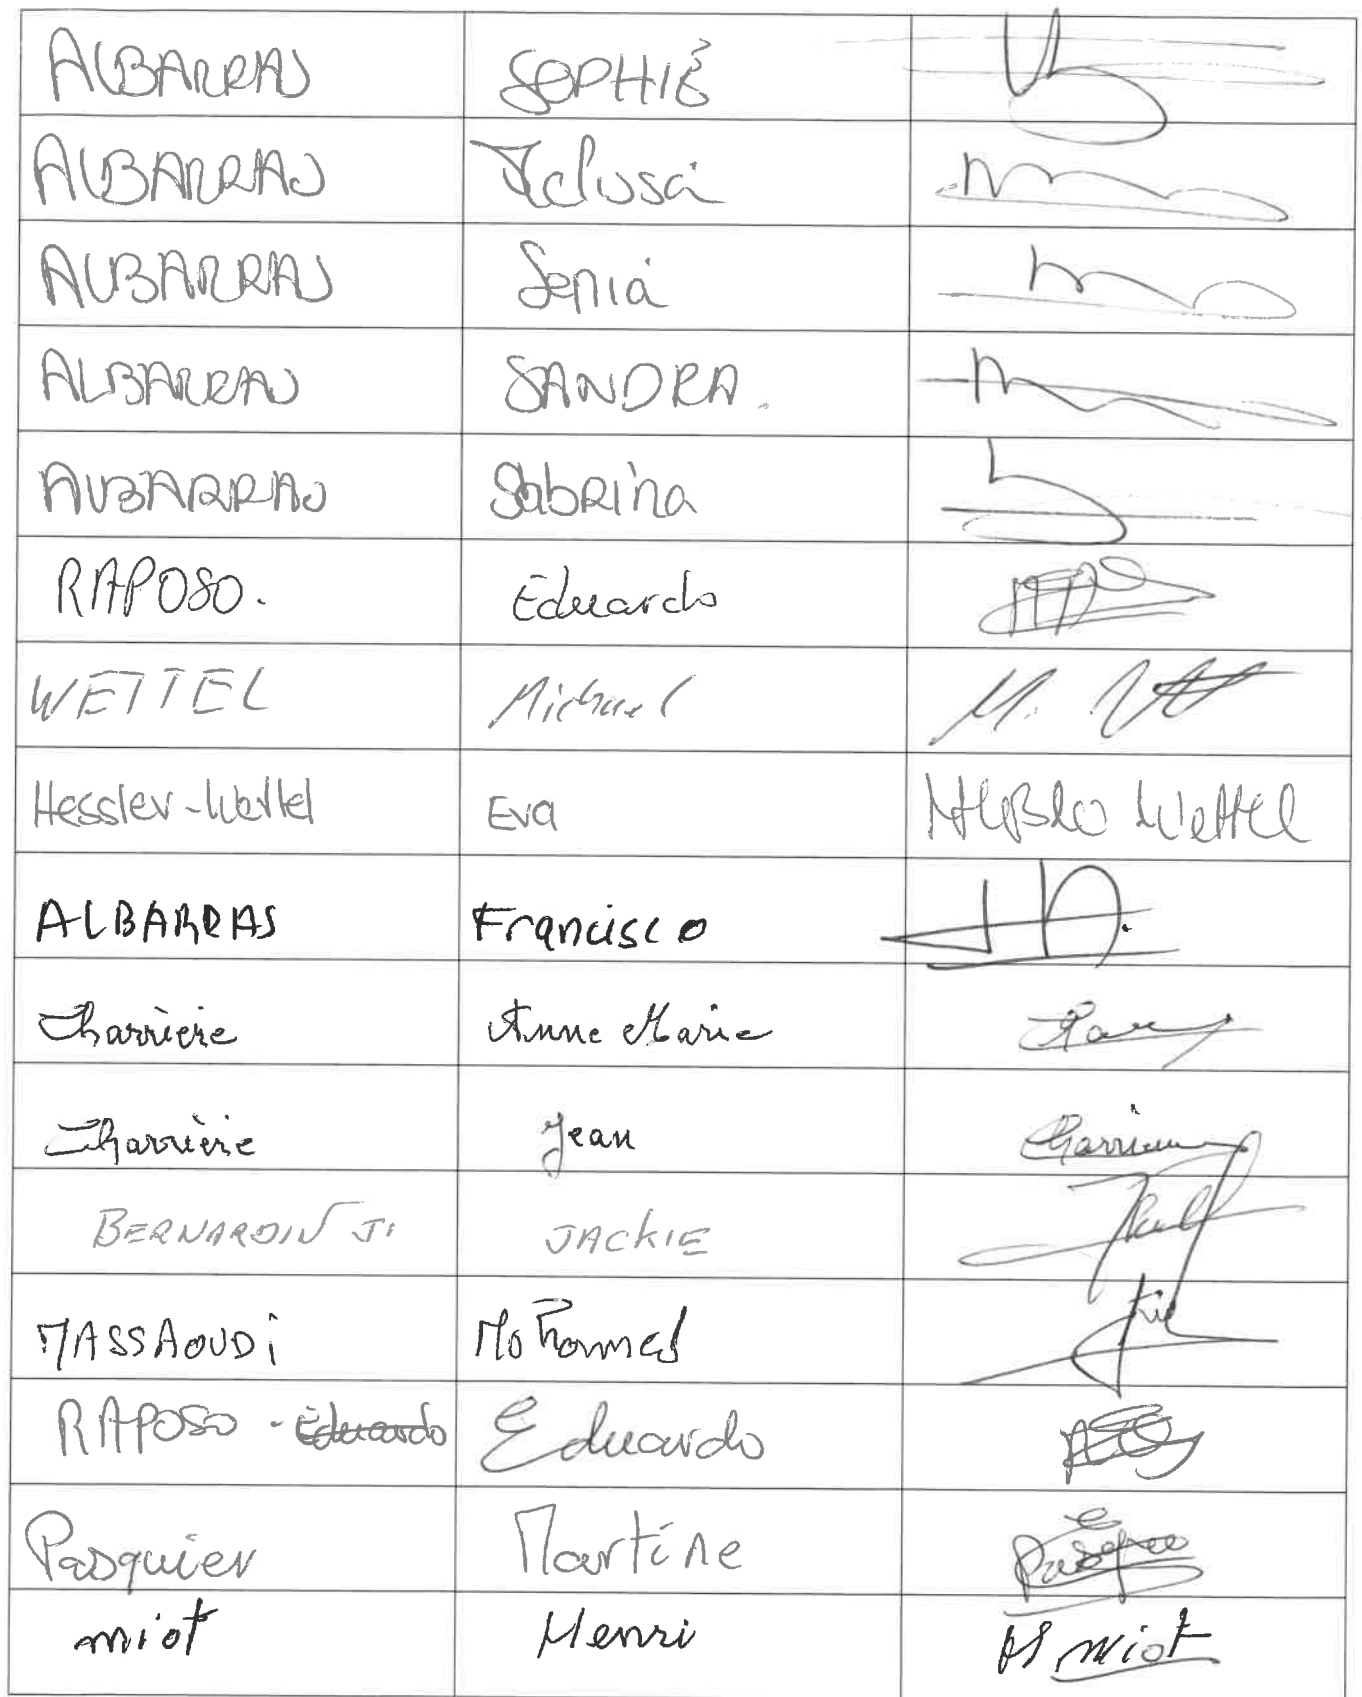 ALBARRAS SOPHIE
ALBARRAS Melissa
ALBARRAS Senia
ALBARRAS SANDRA.
ALBARRAS SabRina
RAPOSO. Eduardo
WETTEL Michael M.
Hessler-Wettel Eva Wettel
ALBARRAS Francisco
Charrière Anne Marie
Charrière Jean Charriere
BERNARDIN J. JACKIE
MASSAOUDi Mohammed
RAPOSO - Eduardo Eduardo
Pasquier Martine
miot Henri H miot